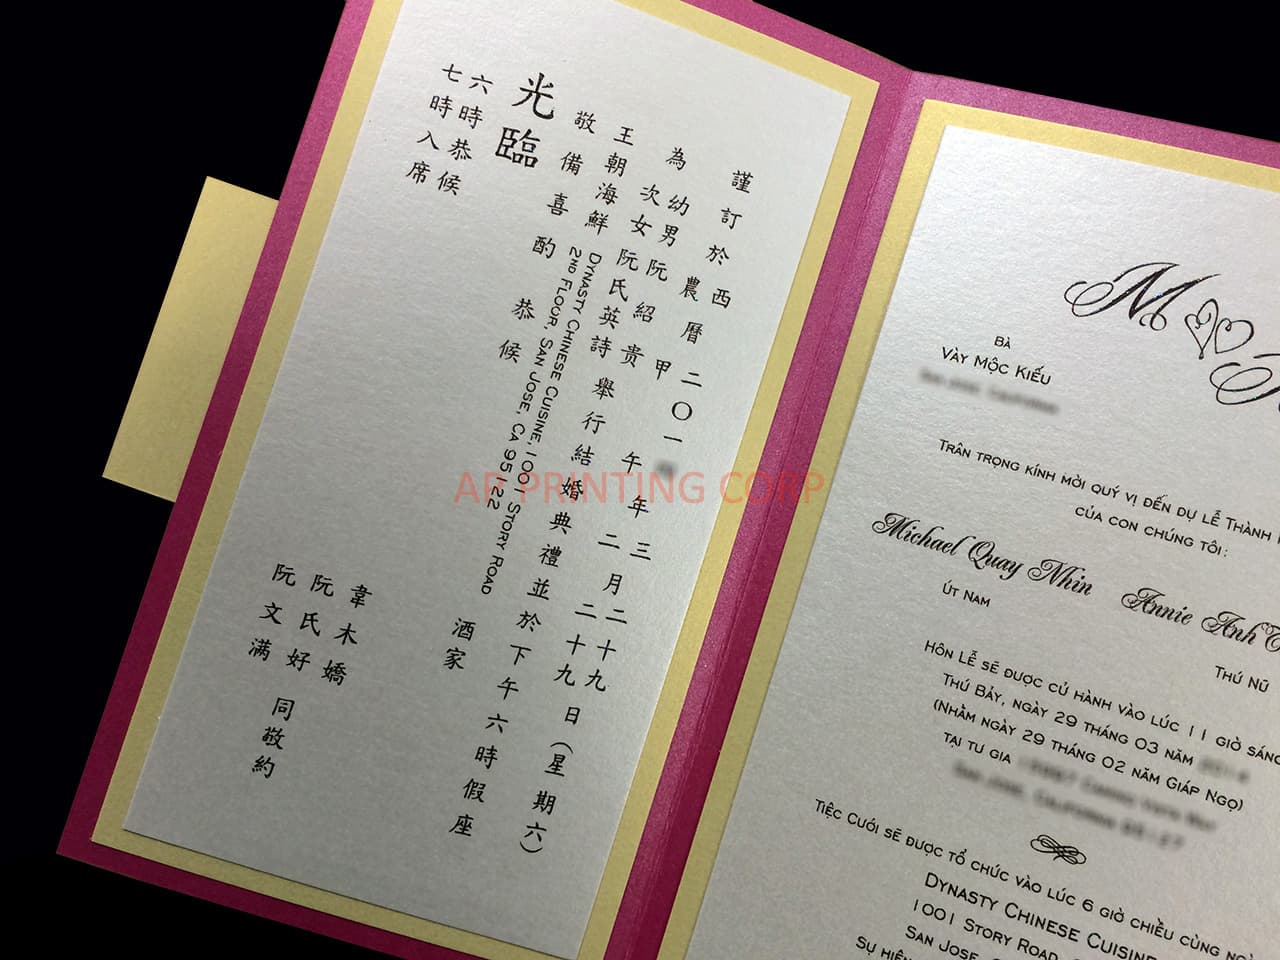 謹訂於西曆二〇一 年三月二十九日(星期六)
農 甲午年二月二十九
為幼男阮紹贵
次女阮氏英詩舉行結婚典禮並於下午六時假座
王朝海鮮酒家
DYNASTY CHINESE CUISINE, 1001 STORY ROAD
2ND FLOOR, SAN JOSE, CA 95122
敬備喜酌 恭候
光臨
六時恭候
七時入席
韋木嬌
阮氏好
阮文满
同敬約
M
BÀ
VÀY MỘC KIẾU
TRÂN TRỌNG KÍNH MỜI QUÝ VỊ ĐẾN DỰ LỄ THÀNH
CỦA CON CHÚNG TÔI:
Michael Quay Nhin Annie Anh
ÚT NAM
THÚ NŨ
HÔN LỄ SẼ ĐƯỢC CỦ HÀNH VÀO LÚC 11 GIỜ SÁNG
THÚ BẢY, NGÀY 29 THÁNG 03 NĂM
(NHẰM NGÀY 29 THÁNG 02 NĂM GIÁP NGỌ)
TẠI TƯ GIA
TIỆC CƯỚI SẼ ĐƯỢC TỔ CHỨC VÀO LÚC 6 GIỜ CHIỀU CÙNG
DYNASTY CHINESE CUISINE
1001 STORY ROAD
SAN JOSE
SỰ HIỆN
AP PRINTING CORP